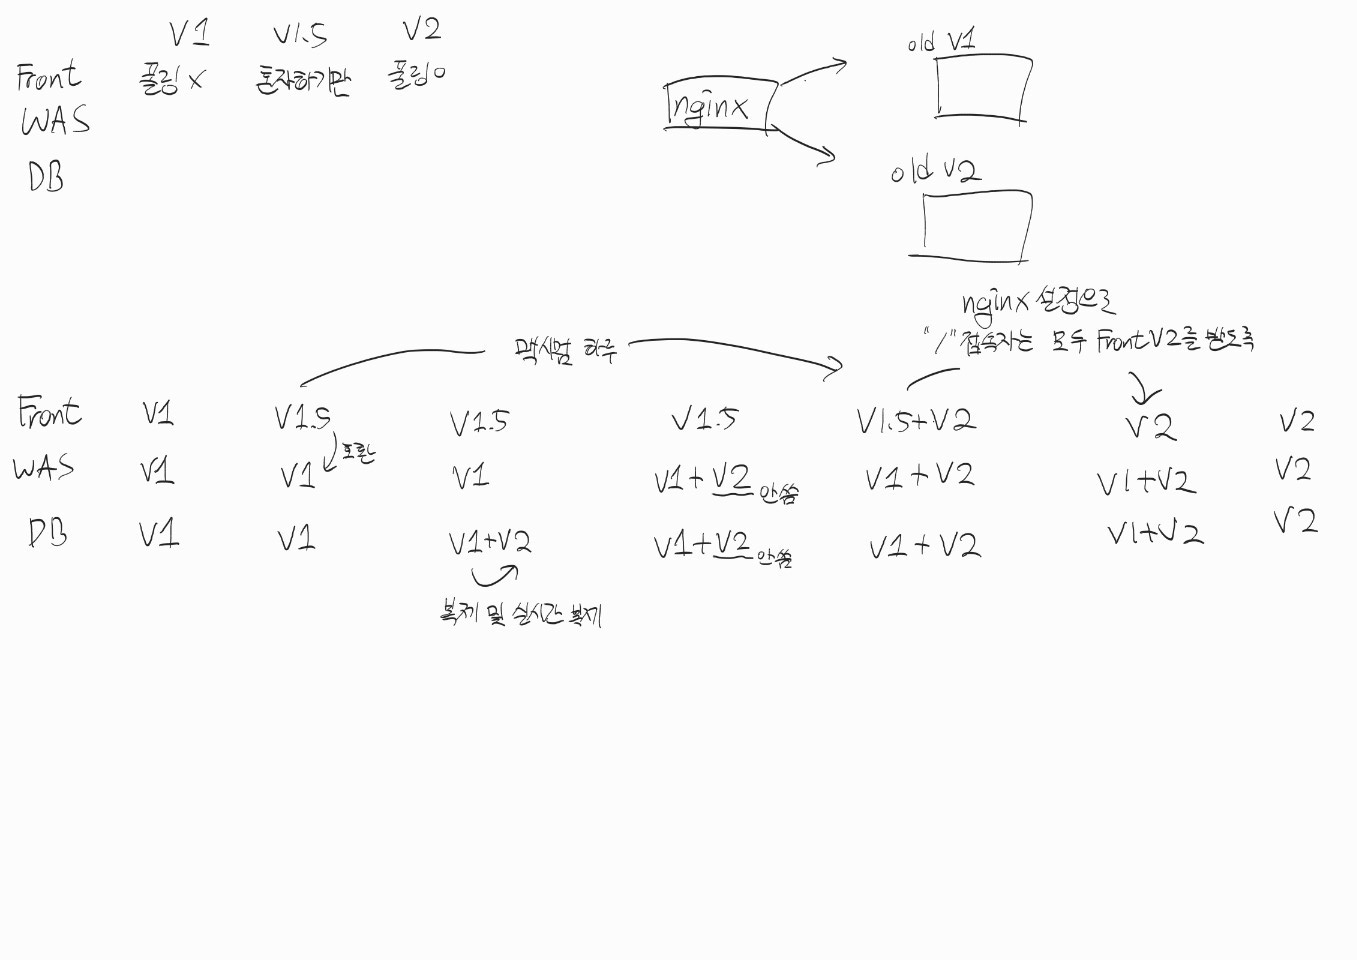 V1 V1.5 V2
Front 폴링 X 혼자하기만 폴링 O
WAS
DB
nginx
old V1
old V2
nginx 설정으로
"/" 접속자는 모두 Front V2를 받도록
맥시멈 하루
Front V1 V1.5 V1.5 V1.5 V1.5+V2 V2 V2
호환
WAS V1 V1 V1 V1+V2 안씀 V1+V2 V1+V2 V2
DB V1 V1 V1+V2 V1+V2 안씀 V1+V2 V1+V2 V2
복제 및 실시간 복제